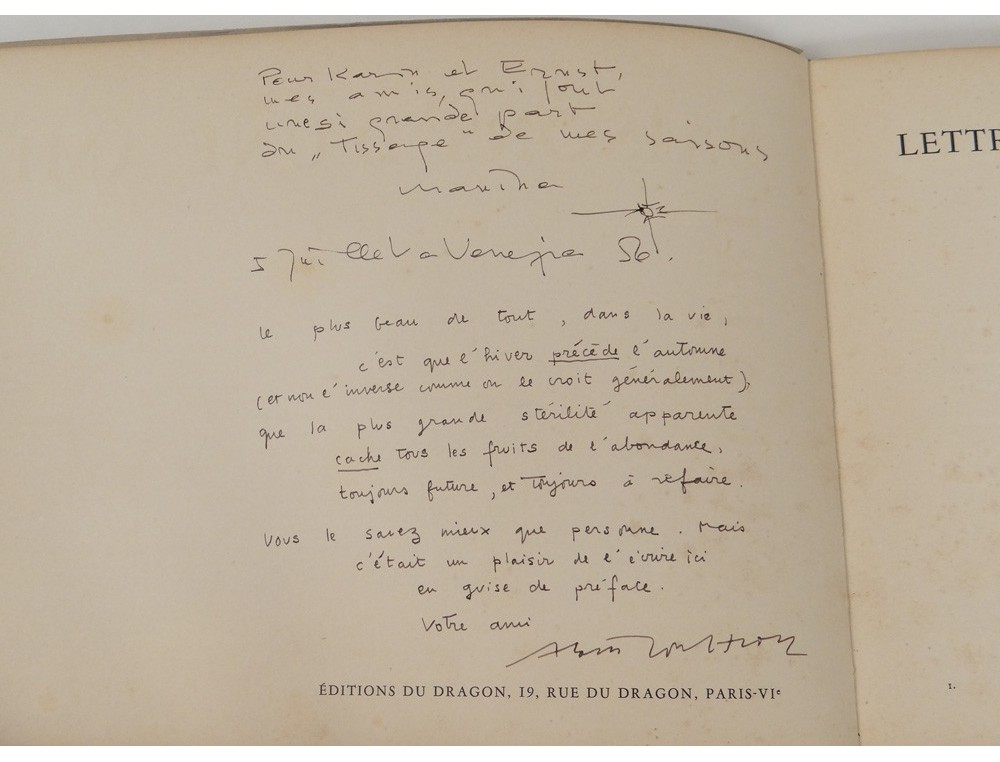 Pour Karin et Ernst,
mes amis, qui font
une si grande part
du „Tissage" de mes saisons
Martha
5 Juillet La Venezia 56.
le plus beau de tout, dans la vie,
c'est que l'hiver précède l'automne
(et non l'inverse comme on le croit généralement),
que la plus grande stérilité apparente
cache tous les fruits de l'abondance,
toujours future, et toujours à refaire.
Vous le savez mieux que personne. Mais
c'était un plaisir de l'écrire ici
en guise de préface.
Votre ami
Alain
ÉDITIONS DU DRAGON, 19, RUE DU DRAGON, PARIS-VIe
LETTR
1.